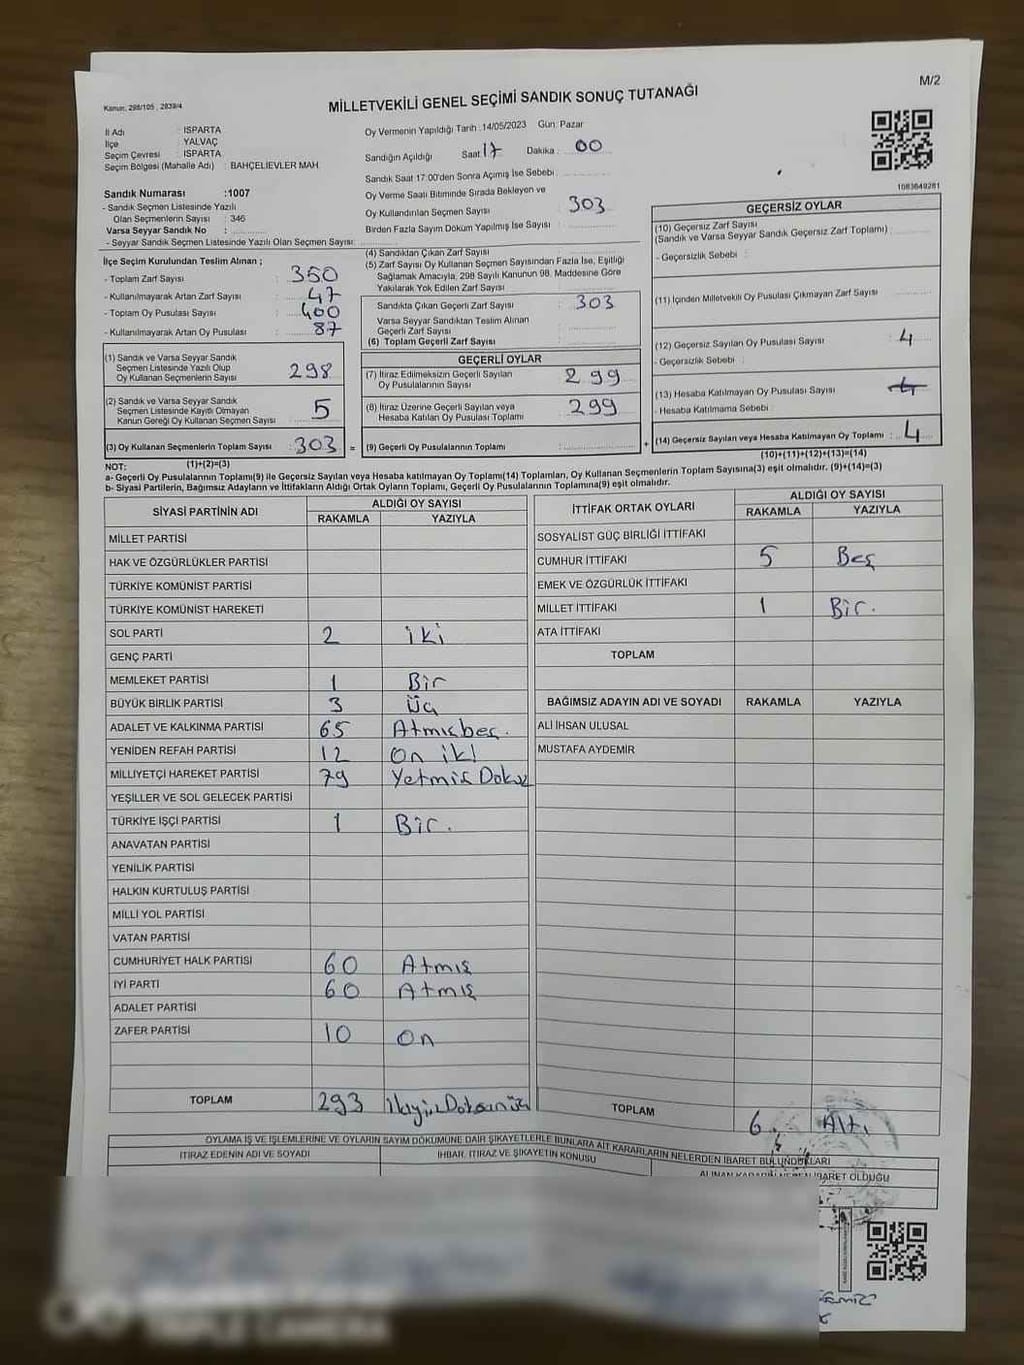 M/2
Kanun: 298/105 , 2839/4
MİLLETVEKİLİ GENEL SEÇİMİ SANDIK SONUÇ TUTANAĞI
İl Adı : ISPARTA
İlçe : YALVAÇ
Seçim Çevresi : ISPARTA
Seçim Bölgesi (Mahalle Adı) : BAHÇELİEVLER MAH.
Sandık Numarası :1007
- Sandık Seçmen Listesinde Yazılı
Olan Seçmenlerin Sayısı : 346
Varsa Seyyar Sandık No :
- Seyyar Sandık Seçmen Listesinde Yazılı Olan Seçmen Sayısı:
Oy Vermenin Yapıldığı Tarih :14/05/2023 Gün: Pazar
Sandığın Açıldığı Saat 17 Dakika : 00
Sandık Saat 17:00'den Sonra Açılmış İse Sebebi :
Oy Verme Saati Bitiminde Sırada Bekleyen ve
Oy Kullandırılan Seçmen Sayısı 303
Birden Fazla Sayım Döküm Yapılmış İse Sayısı :
1083649281
İlçe Seçim Kurulundan Teslim Alınan ;
- Toplam Zarf Sayısı : 350
- Kullanılmayarak Artan Zarf Sayısı : 47
- Toplam Oy Pusulası Sayısı : 400
- Kullanılmayarak Artan Oy Pusulası : 87
(1) Sandık ve Varsa Seyyar Sandık
Seçmen Listesinde Yazılı Olup
Oy Kullanan Seçmenlerin Sayısı 298
(2) Sandık ve Varsa Seyyar Sandık
Seçmen Listesinde Kayıtlı Olmayan
Kanun Gereği Oy Kullanan Seçmen Sayısı 5
(3) Oy Kullanan Seçmenlerin Toplam Sayısı : 303 =
(1)+(2)=(3)
(4) Sandıktan Çıkan Zarf Sayısı :
(5) Zarf Sayısı Oy Kullanan Seçmen Sayısından Fazla İse, Eşitliği
Sağlamak Amacıyla, 298 Sayılı Kanunun 98. Maddesine Göre
Yakılarak Yok Edilen Zarf Sayısı :
Sandıkta Çıkan Geçerli Zarf Sayısı : 303
Varsa Seyyar Sandıktan Teslim Alınan
Geçerli Zarf Sayısı
(6) Toplam Geçerli Zarf Sayısı
GEÇERLİ OYLAR
(7) İtiraz Edilmeksizin Geçerli Sayılan
Oy Pusulalarının Sayısı : 299
(8) İtiraz Üzerine Geçerli Sayılan veya
Hesaba Katılan Oy Pusulası Toplamı : 299
(9) Geçerli Oy Pusulalarının Toplamı : +
GEÇERSİZ OYLAR
(10) Geçersiz Zarf Sayısı
(Sandık ve Varsa Seyyar Sandık Geçersiz Zarf Toplamı) :
- Geçersizlik Sebebi :
(11) İçinden Milletvekili Oy Pusulası Çıkmayan Zarf Sayısı
(12) Geçersiz Sayılan Oy Pusulası Sayısı : 4
- Geçersizlik Sebebi :
(13) Hesaba Katılmayan Oy Pusulası Sayısı : 4
- Hesaba Katılmama Sebebi :
(14) Geçersiz Sayılan veya Hesaba Katılmayan Oy Toplamı : 4
(10)+(11)+(12)+(13)=(14)
NOT:
a- Geçerli Oy Pusulalarının Toplamı(9) ile Geçersiz Sayılan veya Hesaba katılmayan Oy Toplamı(14) Toplamları, Oy Kullanan Seçmenlerin Toplam Sayısına(3) eşit olmalıdır. (9)+(14)=(3)
b- Siyasi Partilerin, Bağımsız Adayların ve İttifakların Aldığı Ortak Oyların Toplamı, Geçerli Oy Pusulalarının Toplamına(9) eşit olmalıdır.
SİYASİ PARTİNİN ADI ALDIĞI OY SAYISI
RAKAMLA YAZIYLA
MİLLET PARTİSİ
HAK VE ÖZGÜRLÜKLER PARTİSİ
TÜRKİYE KOMÜNİST PARTİSİ
TÜRKİYE KOMÜNİST HAREKETİ
SOL PARTİ 2 iki
GENÇ PARTİ
MEMLEKET PARTİSİ 1 Bir
BÜYÜK BİRLİK PARTİSİ 3 Üç
ADALET VE KALKINMA PARTİSİ 65 Atmışbeş.
YENİDEN REFAH PARTİSİ 12 On iki
MİLLİYETÇİ HAREKET PARTİSİ 79 Yetmiş Dokuz
YEŞİLLER VE SOL GELECEK PARTİSİ
TÜRKİYE İŞÇİ PARTİSİ 1 Bir.
ANAVATAN PARTİSİ
YENİLİK PARTİSİ
HALKIN KURTULUŞ PARTİSİ
MİLLİ YOL PARTİSİ
VATAN PARTİSİ
CUMHURİYET HALK PARTİSİ 60 Atmış
İYİ PARTİ 60 Atmış
ADALET PARTİSİ
ZAFER PARTİSİ 10 On
TOPLAM 293 ikiyüzDoksanüç
İTTİFAK ORTAK OYLARI ALDIĞI OY SAYISI
RAKAMLA YAZIYLA
SOSYALİST GÜÇ BİRLİĞİ İTTİFAKI
CUMHUR İTTİFAKI 5 Beş
EMEK VE ÖZGÜRLÜK İTTİFAKI
MİLLET İTTİFAKI 1 Bir.
ATA İTTİFAKI
TOPLAM
BAĞIMSIZ ADAYIN ADI VE SOYADI RAKAMLA YAZIYLA
ALİ İHSAN ULUSAL
MUSTAFA AYDEMİR
TOPLAM 6 Altı
OYLAMA İŞ VE İŞLEMLERİNE VE OYLARIN SAYIM DÖKÜMÜNE DAİR ŞİKAYETLERLE BUNLARA AİT KARARLARIN NELERDEN İBARET BULUNDUKLARI
İTİRAZ EDENİN ADI VE SOYADI İHBAR, İTİRAZ VE ŞİKAYETİN KONUSU
İBARET OLDUĞU